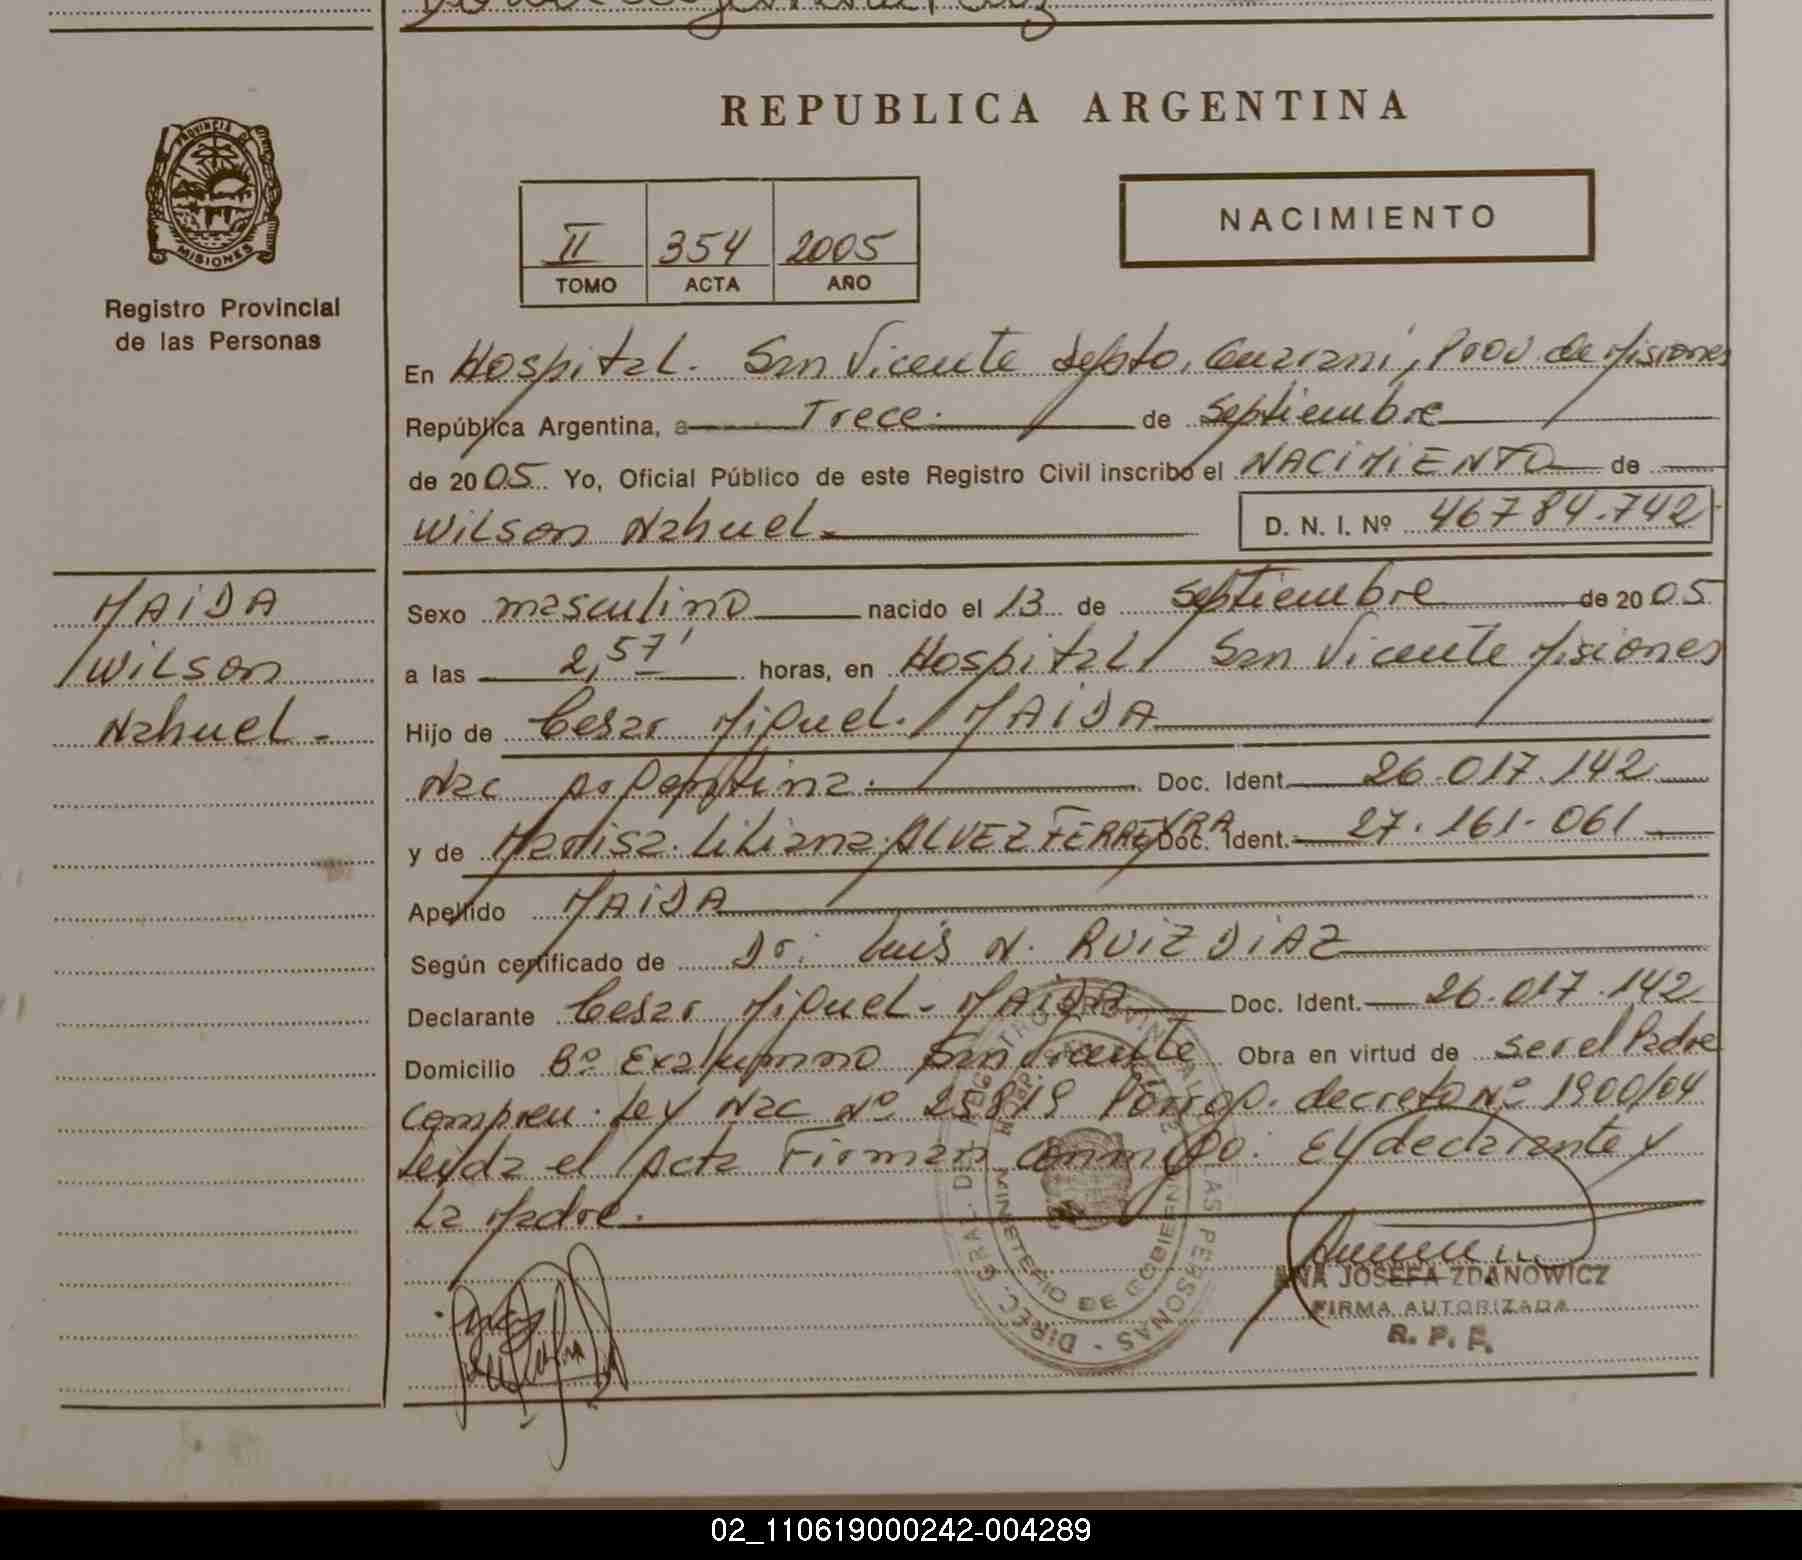 PROVINCIA DE
MISIONES
Registro Provincial
de las Personas
REPUBLICA ARGENTINA
II 354 2005
TOMO ACTA AÑO
NACIMIENTO
En Hospital. San Vicente Depto. Guarani, Prov. de Misiones
República Argentina, a Trece. de Septiembre
de 2005 Yo, Oficial Público de este Registro Civil inscribo el NACIMIENTO de
Wilson Nahuel D. N. I. Nº 46784.742
MAIDA
Wilson
Nahuel.-
Sexo masculino nacido el 13 de Septiembre de 2005
a las 2,57' horas, en Hospital San Vicente Misiones
Hijo de Cesar Miguel. MAIDA
Nac Argentina. Doc. Ident. 26.017.142
y de Marisa. Liliana. ALVEZ FERREYRA Doc. Ident. 27.161.061
Apellido MAIDA
Según certificado de Dr. Luis N. RUIZ DIAZ
Declarante Cesar Miguel- MAIDA Doc. Ident. 26.017.142
Domicilio Bº San Vicente Obra en virtud de ser el Padre
Ley Nac Nº 25819 decreto Nº 1900/04
Leida el Acta Firman conmigo. El declarante y
La Madre.
DIREC. GRAL. DEL REGISTRO PROVINCIAL DE LAS PERSONAS
MINISTERIO DE GOBIERNO
ANA JOSEFA ZDANOWICZ
FIRMA AUTORIZADA
R. P. P.
02_110619000242-004289